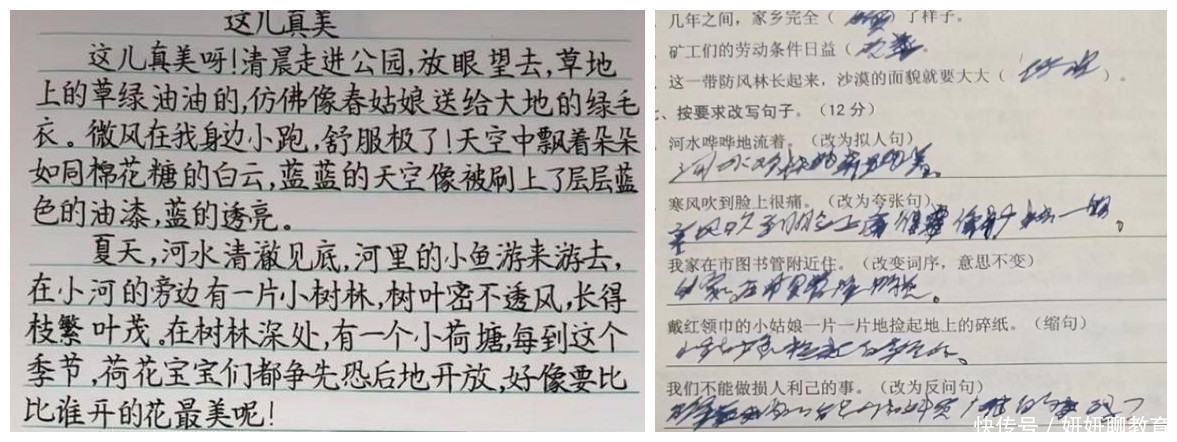 这儿真美
这儿真美呀!清晨走进公园,放眼望去,草地
上的草绿油油的,仿佛像春姑娘送给大地的绿毛
衣。微风在我身边小跑,舒服极了!天空中飘着朵朵
如同棉花糖的白云,蓝蓝的天空像被刷上了层层蓝
色的油漆,蓝的透亮。
夏天,河水清澈见底,河里的小鱼游来游去,
在小河的旁边有一片小树林,树叶密不透风,长得
枝繁叶茂。在树林深处,有一个小荷塘,每到这个
季节,荷花宝宝们都争先恐后地开放,好像要比
比谁开的花最美呢!
几年之间，家乡完全（ ）了样子。
矿工们的劳动条件日益（ 。
这一带防风林长起来，沙漠的面貌就要大大（ ）。
、按要求改写句子。（12 分）
河水哗哗地流着。（改为拟人句）
河水
寒风吹到脸上很痛。（改为夸张句）
风吹到脸上 一般。
我家在市图书管附近住。（改变词序，意思不变）
家在市 附近。
戴红领巾的小姑娘一片一片地捡起地上的碎纸。（缩句）
小姑娘捡起
我们不能做损人利己的事。（改为反问句）
快传号 / 妍妍聊教育